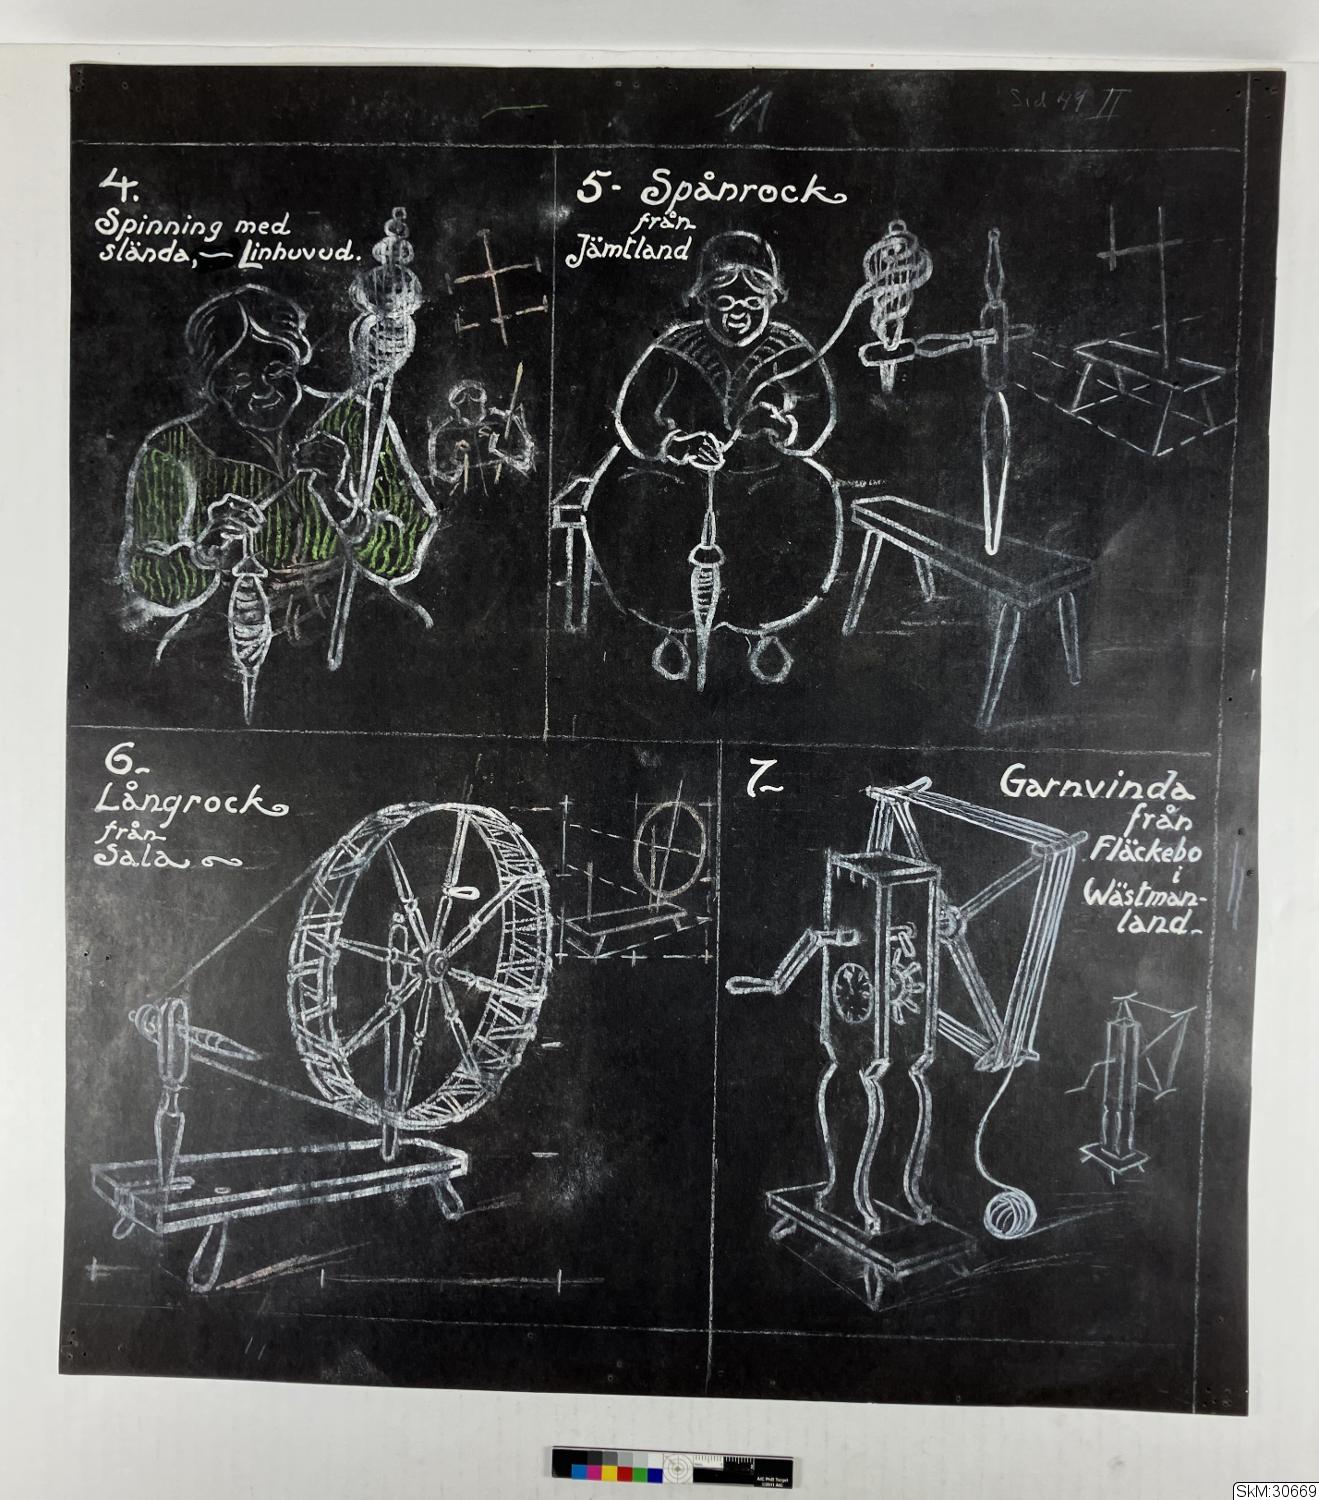 Sid 49 II
4.
Spinning med
slända,— Linhuvud.
5- Spånrock
från
Jämtland
6-
Långrock
från
Sala
7-
Garnvinda
från
Fläckebo
i
Wästman-
land-
SkM:30669